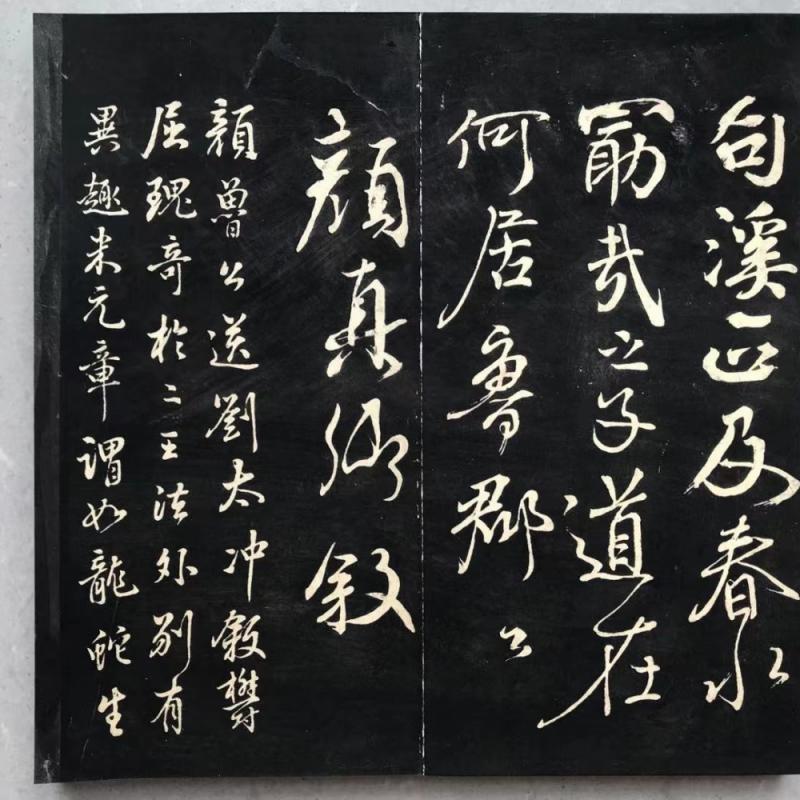 句溪正及春水
勗哉之子道在
何居魯郡公
顏真卿叙
顏魯公送劉太冲叙欝
屈瑰奇於二王法外別有
異趣米元章謂如龍蛇生